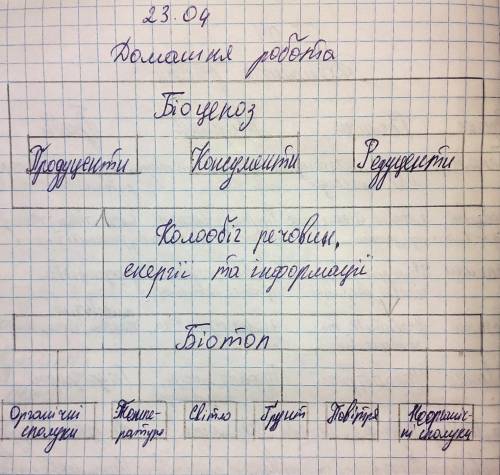 23.04
Домашня робота
Біоценоз
Продуценти Консументи Редуценти
Колообіг речовин,
енергії та інформації
Біотоп
Органічні Темпе- Світло Ґрунт Повітря Неорганіч-
сполуки ратура ні сполуки